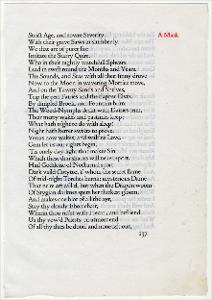 Strict Age, and sowre Severity,
A Mask
With their grave Saws in slumber ly.
We that are of purer fire
Imitate the Starry Quire,
Who in their nightly watchfull Sphears,
Lead in swift round the Months and Years.
The Sounds, and Seas with all their finny drove
Now to the Moon in wavering Morrice move,
And on the Tawny Sands and Shelves,
Trip the pert Fairies and the dapper Elves;
By dimpled Brook, and Fountain brim,
The Wood-Nymphs deckt with Daisies trim,
Their merry wakes and pastimes keep:
What hath night to do with sleep?
Night hath better sweets to prove,
Venus now wakes, and wak'ns Love.
Com let us our rights begin,
'Tis onely day-light that makes Sin
Which these dun shades will ne're report.
Hail Goddesse of Nocturnal sport
Dark vaild Cotytto, t'whom the secret flame
Of mid-night Torches burns; mysterious Dame
That ne're art call'd, but when the Dragon woom
Of Stygian darkness spets her thickest gloom,
And makes one blot of all the ayr,
Stay thy cloudy Ebon chair,
Wherin thou rid'st with Hecat', and befriend
Us thy vow'd Priests, til utmost end
Of all thy dues be done, and none left out,